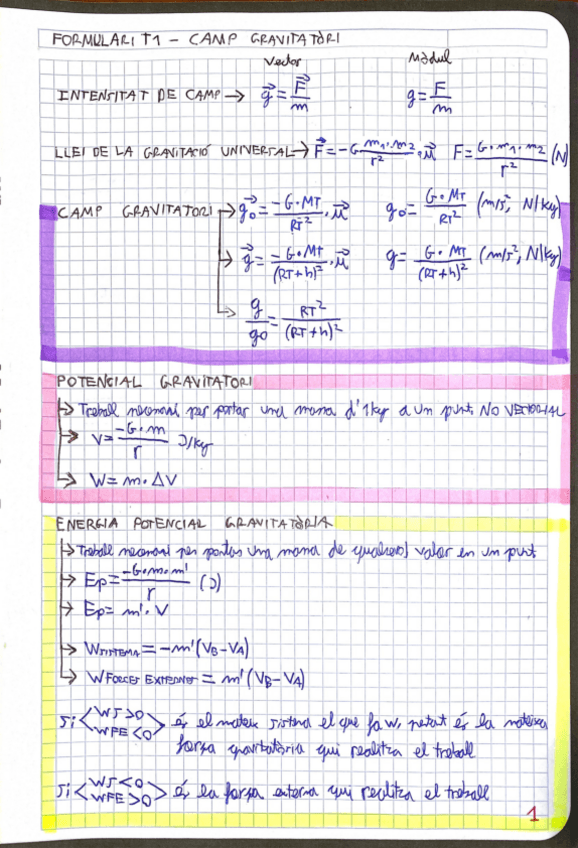 FORMULARI T1 - CAMP GRAVITATÒRI
Vector Mòdul
INTENSITAT DE CAMP → g⃗ = F⃗/m g = F/m
LLEI DE LA GRAVITACIÓ UNIVERSAL → F⃗ = -G m1·m2/r² · u⃗ F = G·m1·m2/r² (N)
CAMP GRAVITATORI → g⃗0 = -G·MT/RT² · u⃗ g0 = G·MT/RT² (m/s², N/kg)
→ g⃗ = -G·MT/(RT+h)² · u⃗ g = G·MT/(RT+h)² (m/s², N/kg)
→ g/g0 = RT²/(RT+h)²
POTENCIAL GRAVITATORI
→ Treball necessari per portar una massa d'1kg a un punt. NO VECTORIAL
→ V = -G·m/r J/kg
→ W = m·ΔV
ENERGIA POTENCIAL GRAVITATÒRIA
→ Treball necessari per portar una massa de qualsevol valor en un punt
→ Ep = -G·m·m'/r (J)
→ Ep = m'·V
→ WSISTEMA = -m'(VB-VA)
→ WFORCES EXTERNES = m'(VB-VA)
Si < WS>0 WFE<0 > és el mateix sistema el que fa W, és la mateixa
força gravitatòria qui realitza el treball
Si < WS<0 WFE>0 > és la força externa qui realitza el treball
1